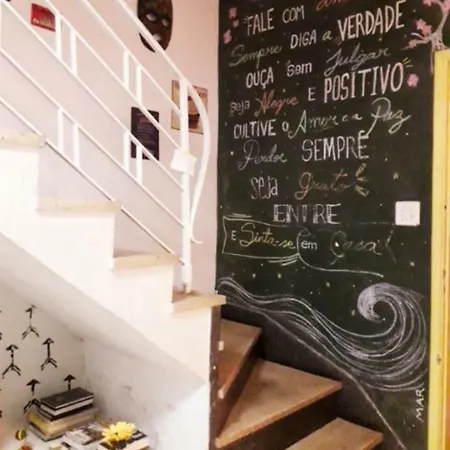 FALE COM amor
Sempre DIGA A VERDADE
OUÇA sem Julgar
seja Alegre E POSITIVO
CULTIVE O Amor e a Paz
Perdoe SEMPRE
seja Grato!
ENTRE
E Sinta-se em Casa!
MAR